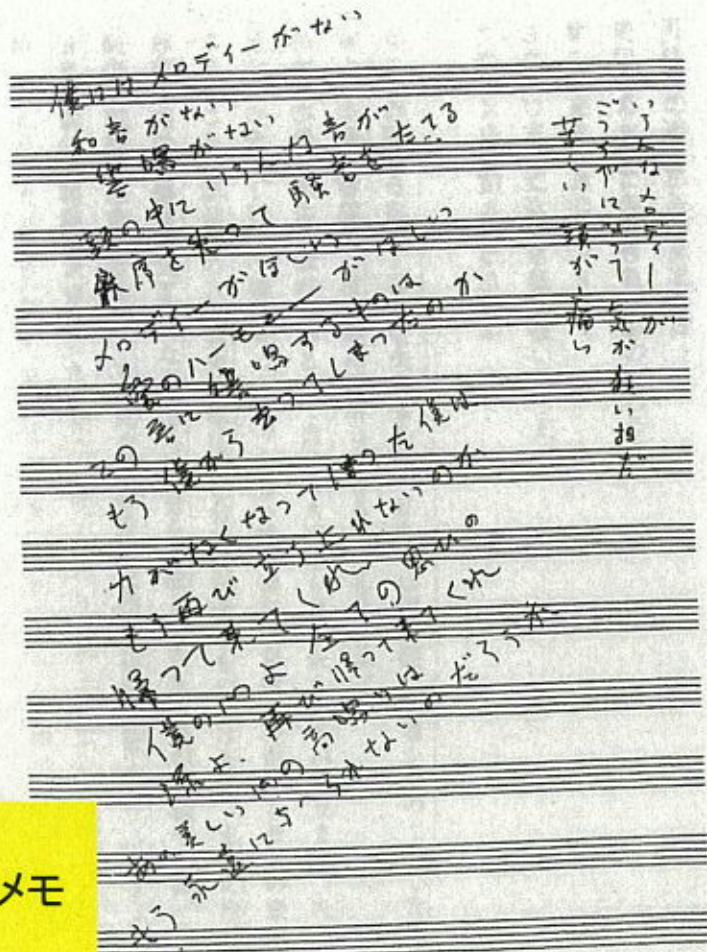 僕にはメロディーがない
和音がない
響鳴がない
頭の中にいろんな音が
秩序を失って騒音をたてる
メロディーがほしい
愛のハーモニーがほしい
この音に響鳴するものは
もう僕から去ってしまったのか
力がなくなってしまった僕は
もう再び立ち上れないのか
帰って来てくれ
僕の心よ 全ての思いの
源よ、再び帰って来てくれ
あの美しい心の高鳴りは
もう永遠に与えられないのだろうか
いろんなメロディーが
ごっちゃになって 気が狂い相だ
苦しい 頭が痛い
メモ